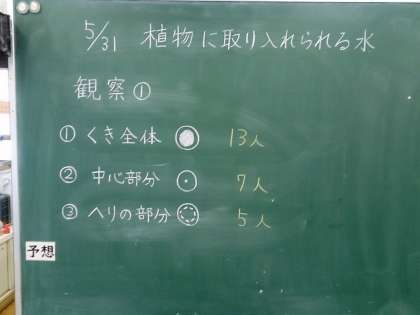 5/31 植物に取り入れられる水
観察①
① くき全体 13人
② 中心部分 7人
③ ヘリの部分 5人
予想